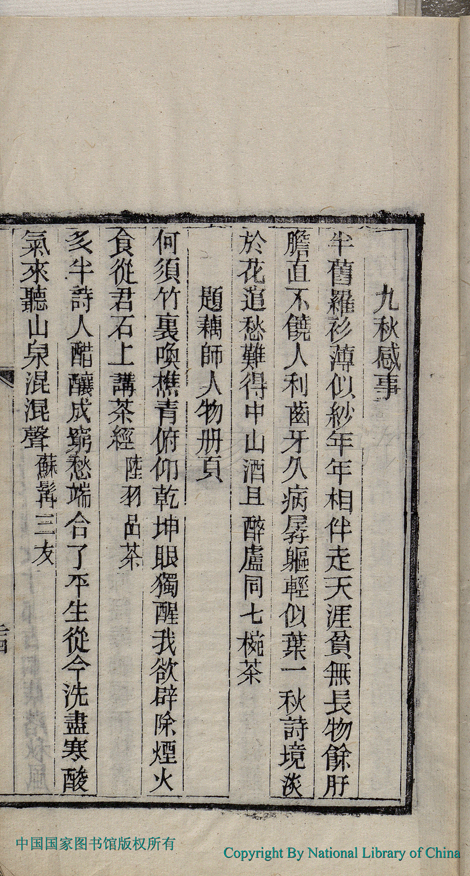 九秋感事
半舊羅衫薄似紗年年相伴走天涯貧無長物餘肝
膽直不饒人利齒牙久病孱軀輕似葉一秋詩境淡
於花追愁難得中山酒且醉盧同七椀茶
題藕師人物册頁
何須竹裏喚樵青俯仰乾坤眼獨醒我欲辟除煙火
食從君石上講茶經 陸羽品茶
多半詩人醋釀成窮愁端合了平生從今洗盡寒酸
氣來聽山泉混混聲 蘇髯三友
中国国家图书馆版权所有
Copyright By National Library of China